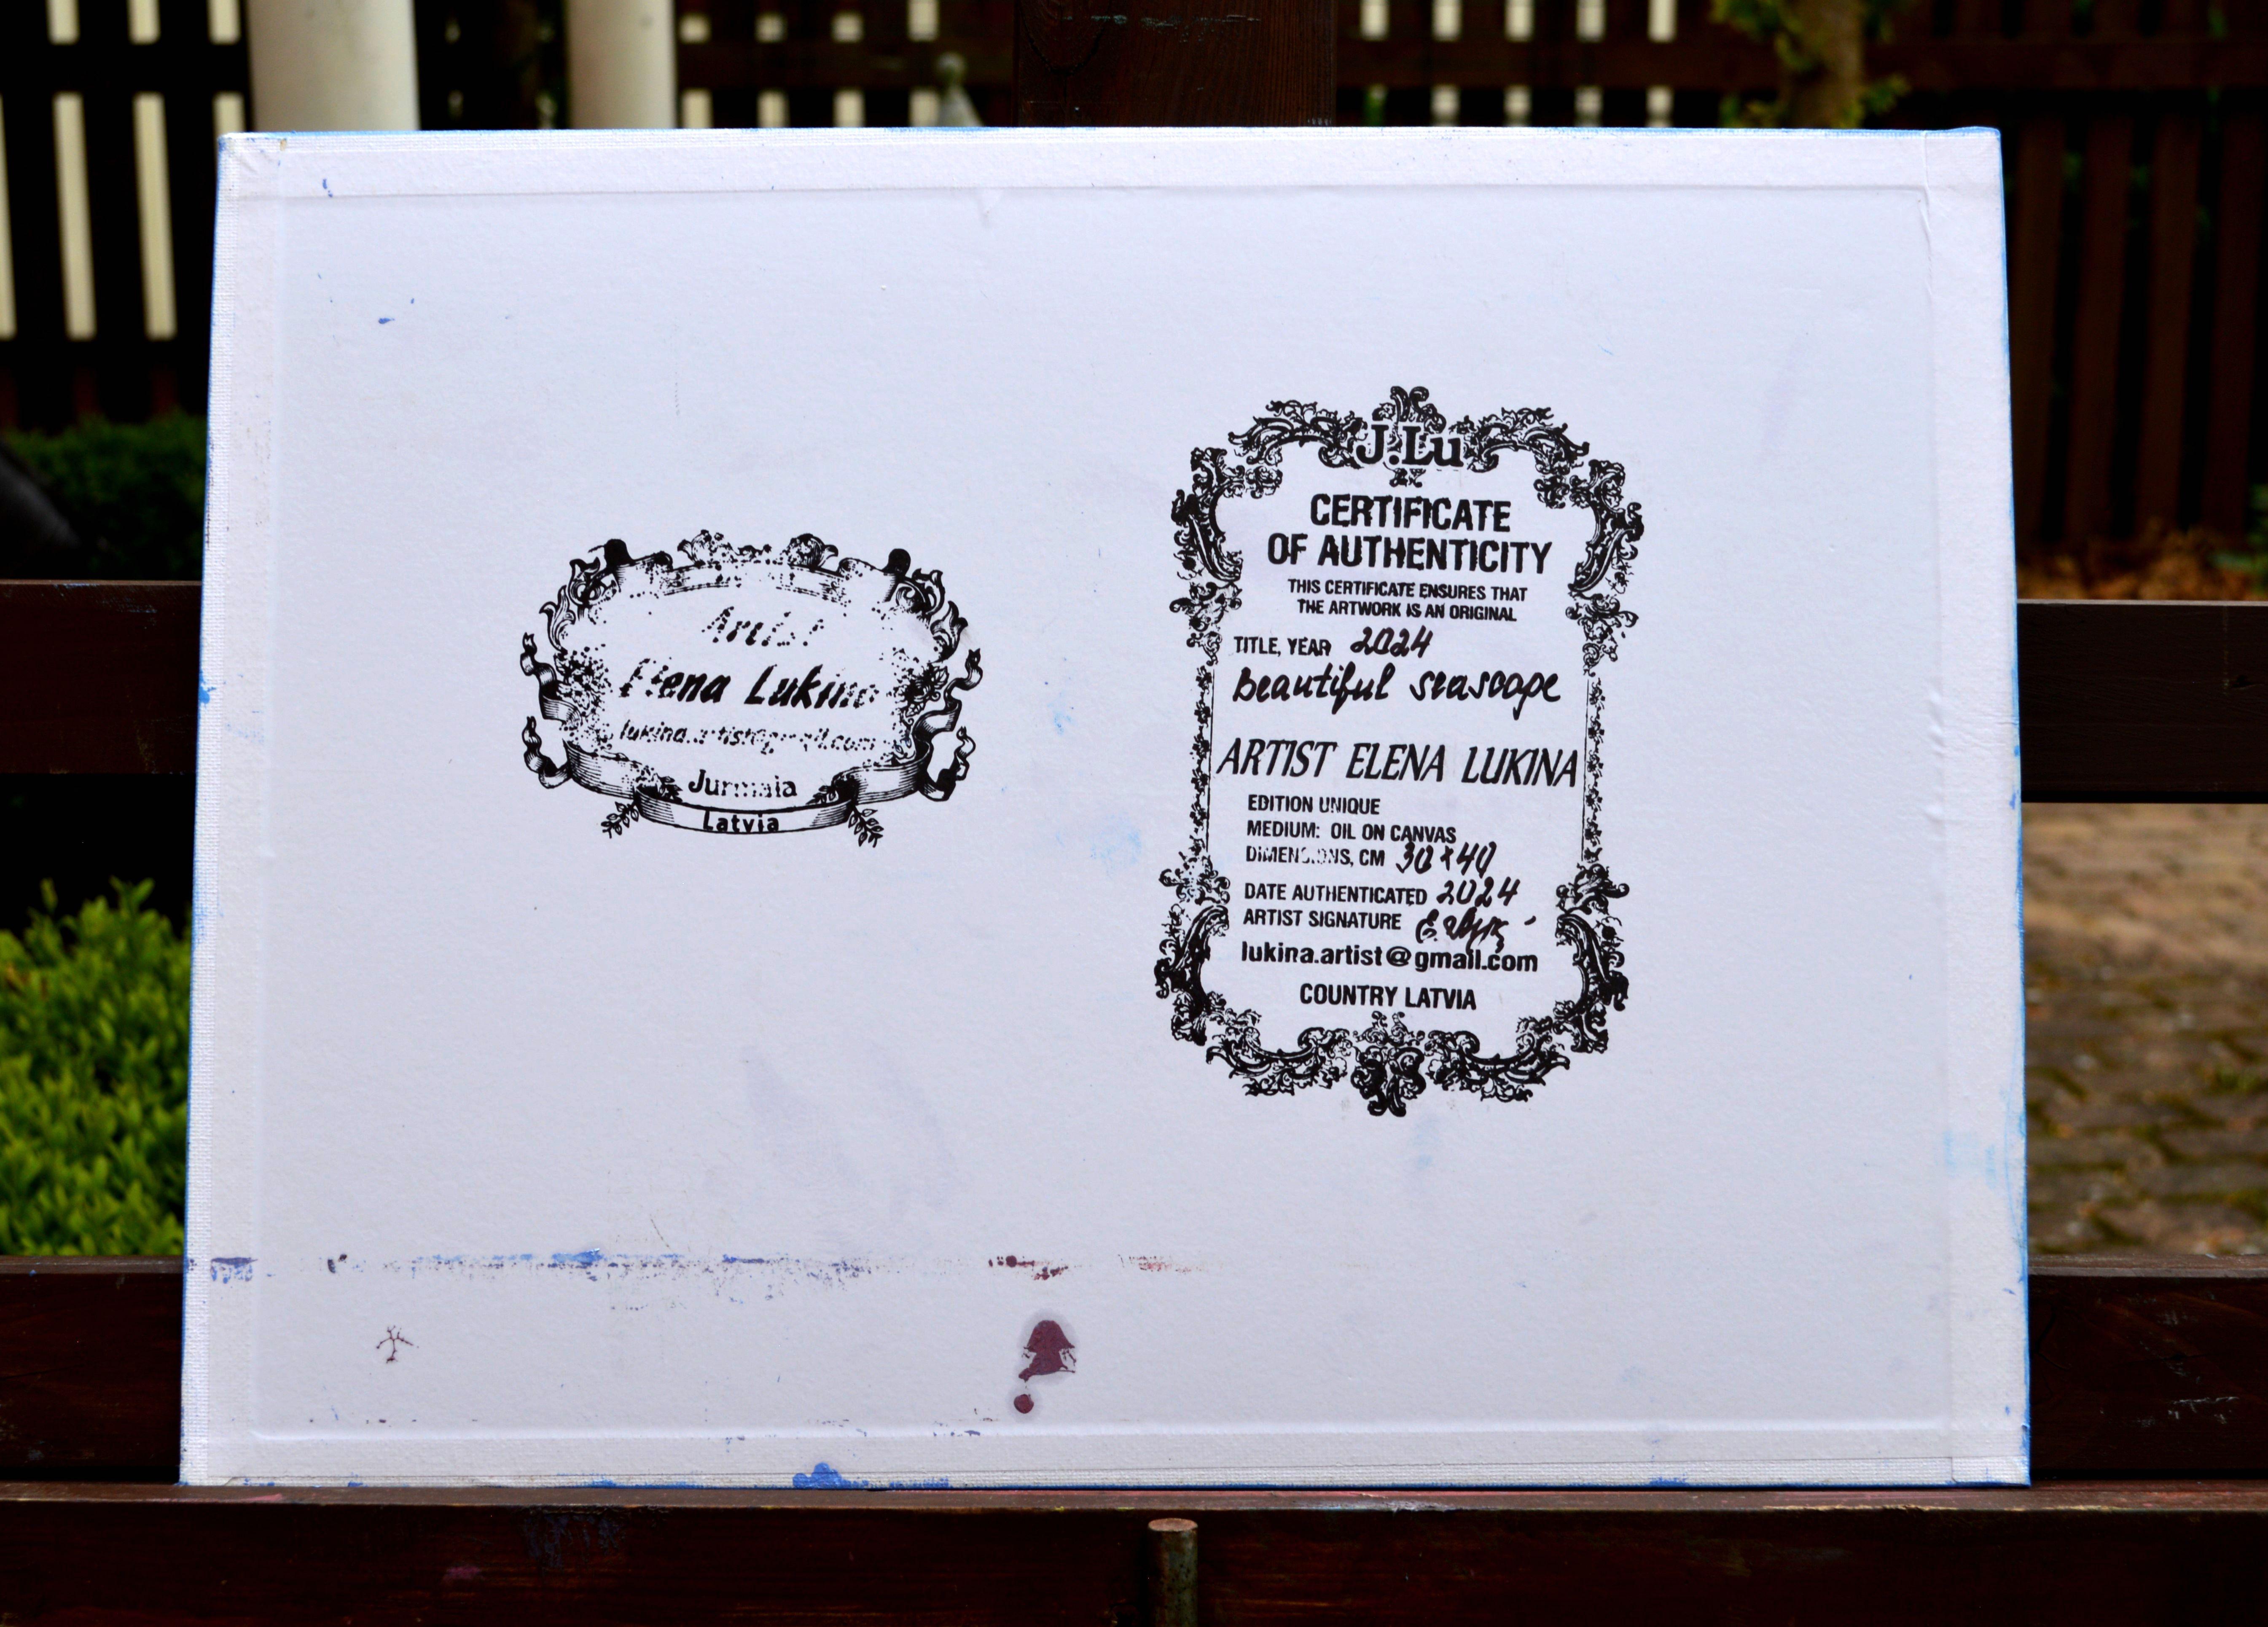 Artist
Elena Lukina
lukina.artist@gmail.com
Jurmala
Latvia
J.Lu
CERTIFICATE
OF AUTHENTICITY
THIS CERTIFICATE ENSURES THAT
THE ARTWORK IS AN ORIGINAL
TITLE, YEAR 2024
Beautiful seascape
ARTIST ELENA LUKINA
EDITION UNIQUE
MEDIUM: OIL ON CANVAS
DIMENSIONS, CM 30x40
DATE AUTHENTICATED 2024
ARTIST SIGNATURE
lukina.artist@gmail.com
COUNTRY LATVIA